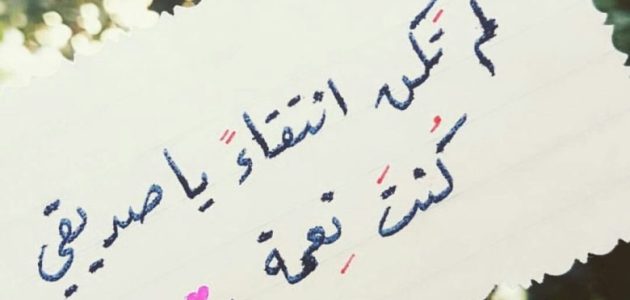 لم تَكن انتقاءً يا صديقي
كُنتَ نِعمة